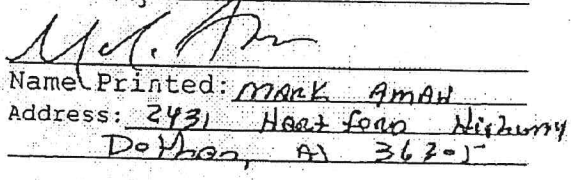 Name Printed: MARK AMAN
Address: 2431 Hartford Highway
Dothan, Al 36305